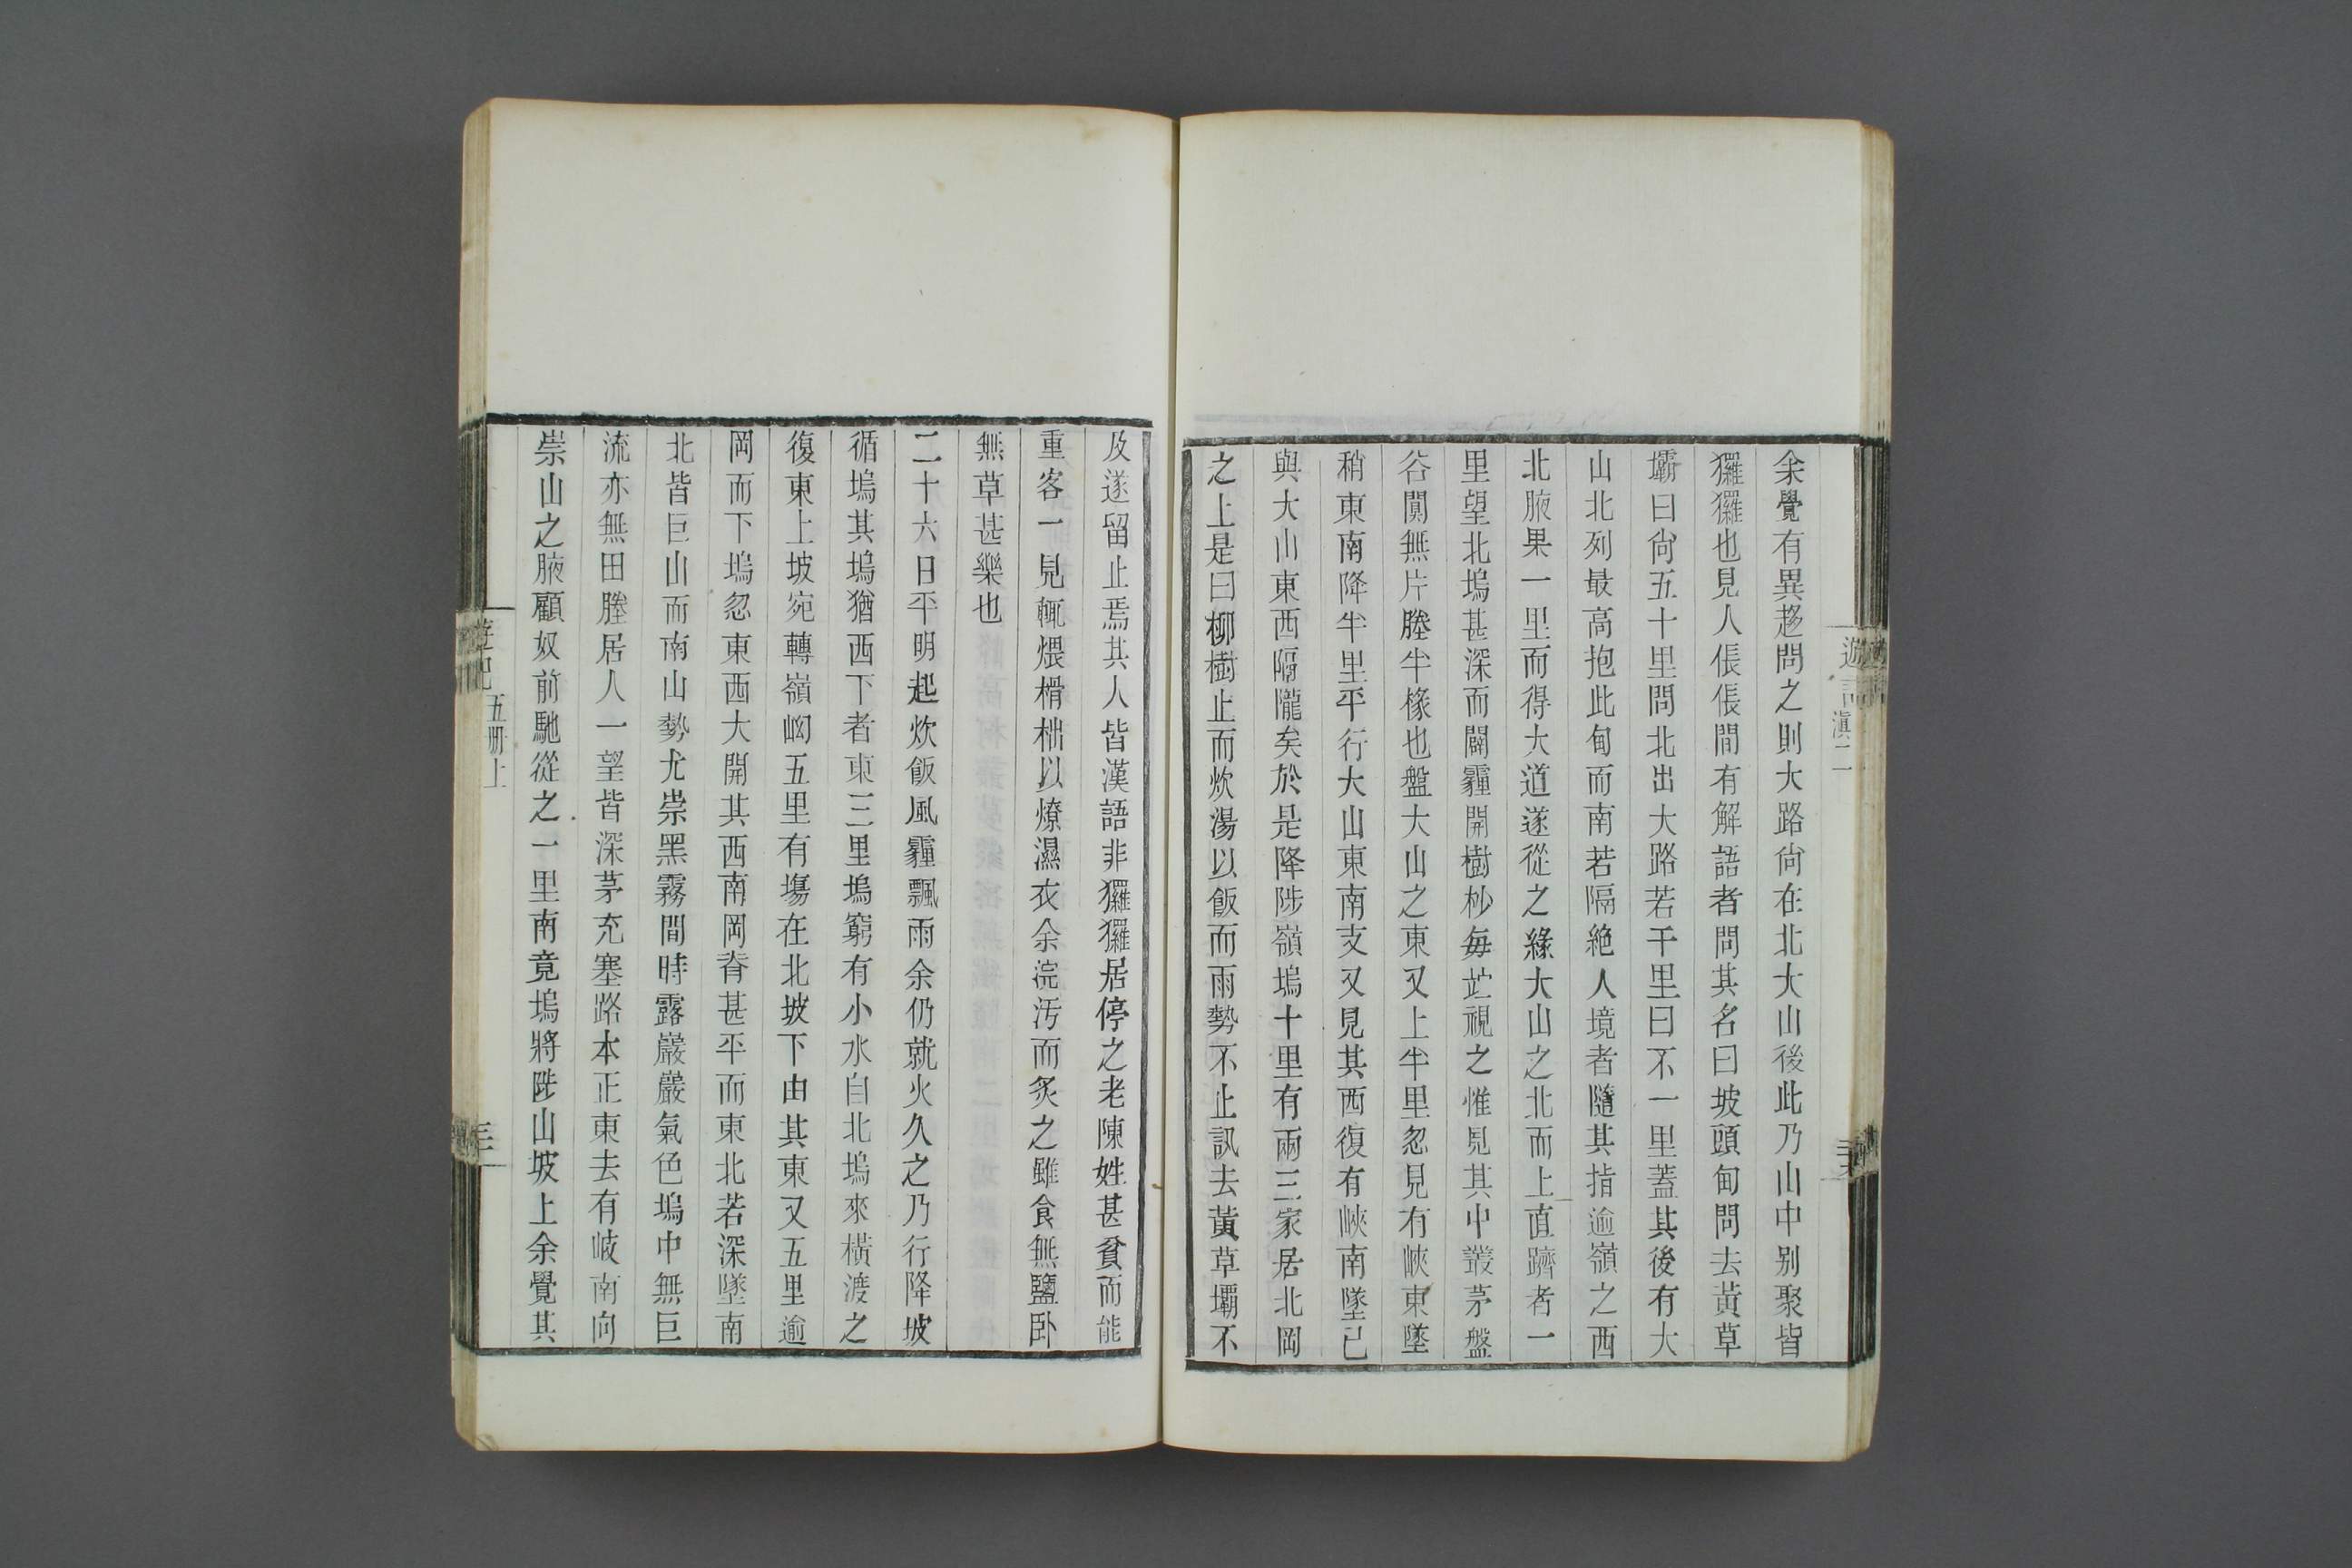 余覺有異趨問之則大路尙在北大山後此乃山中别聚皆
玀玀也見人倀倀間有解語者問其名曰坡頭甸問去黄草
壩曰尙五十里問北出大路若干里曰不一里蓋其後有大
山北列最高抱此甸而南若隔絶人境者隨其指逾嶺之西
北腋果一里而得大道遂從之緣大山之北而上直躋者一
里望北塢甚深而闢霾開樹杪每𥄂視之惟見其中叢茅盤
谷闃無片塍半椽也盤大山之東又上半里忽見有峽東墜
稍東南降半里平行大山東南支又見其西復有峽南墜已
與大山東西隔隴矣於是降陟嶺塢十里有兩三家居北岡
之上是曰柳樹止而炊湯以飯而雨勢不止訊去黄草壩不
及遂留止焉其人皆漢語非玀玀居停之老陳姓甚貧而能
重客一見輒煨榾柮以燎濕衣余浣汚而炙之雖食無鹽卧
無草甚樂也
二十六日平明起炊飯風霾飄雨余仍就火久之乃行降坡
循塢其塢猶西下者東三里塢窮有小水自北塢來横渡之
復東上坡宛轉嶺㘭五里有塲在北坡下由其東又五里逾
岡而下塢忽東西大開其西南岡脊甚平而東北若深墜南
北皆巨山而南山勢尤崇黑霧間時露巖巖氣色塢中無巨
流亦無田塍居人一望皆深茅充塞路本正東去有岐南向
崇山之腋顧奴前馳從之一里南竟塢將陟山坡上余覺其
遊記
滇二
遊記
五册上